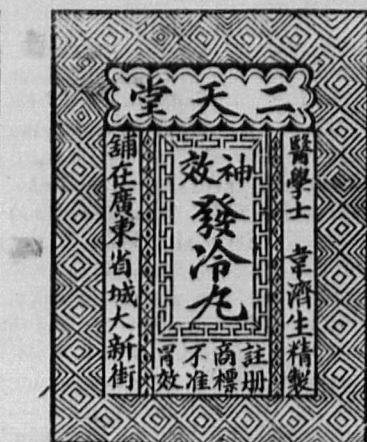 二天堂
醫學士 韋濟生精製
神效
發冷丸
註冊
商標
不准
冒效
舖在廣東省城大新街